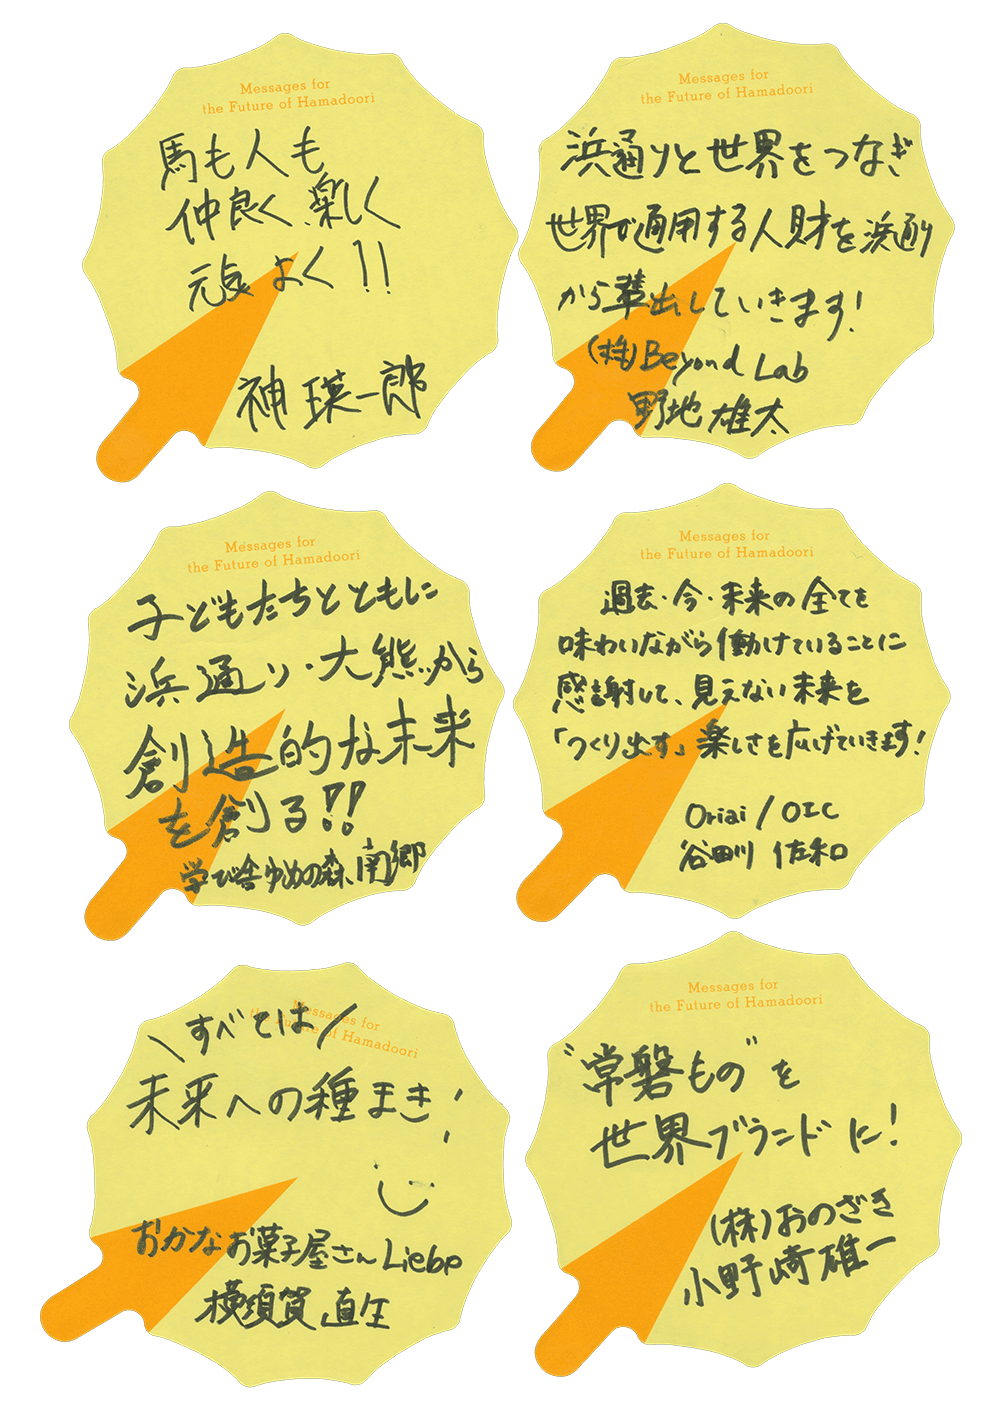 Messages for
the Future of Hamadoori
馬も人も
仲良く、楽しく
元気よく!!
神 瑛一郎
Messages for
the Future of Hamadoori
浜通りと世界をつなぎ
世界が通用する人財を浜通り
から輩出していきます!
(株)Beyond Lab
野地 雄太
Messages for
the Future of Hamadoori
子どもたちとともに
浜通り・大熊から
創造的な未来
を創る!!
学び舎ゆめの森、南郷
Messages for
the Future of Hamadoori
過去・今・未来の全てを
味わいながら働けていることに
感謝して、見えない未来を
「つくり出す」楽しさを広げていきます!
Oriai / OIC
谷田川 佐和
Messages for
the Future of Hamadoori
\すべては/
未来への種まき!
おかなお菓子屋さんLiebe
横須賀 直生
Messages for
the Future of Hamadoori
"常磐もの"を
世界ブランドに!
(株)おのざき
小野崎 雄一